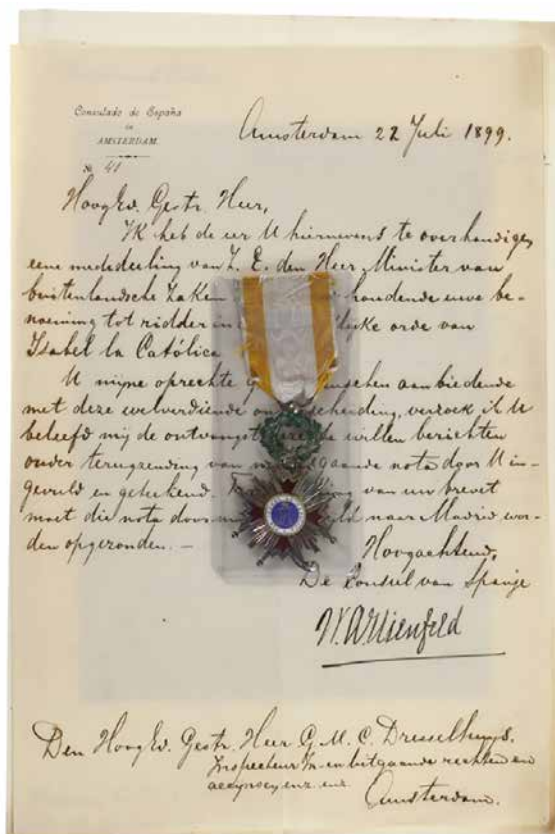 Consulado de España
en
AMSTERDAM.
№ 41
Amsterdam 22 Juli 1899.
HoogEd. Gestr. Heer,
Ik heb de eer U hiernevens te overhandigen
eene mededeeling van Z. E. den Heer Minister van
buitenlandsche Zaken houdende uwe be-
noeming tot ridder in orde van
Isabel la Católica
U mijne oprechte aanbiedende
met deze welverdiende verzoek ik U
beleefd mij de ontvangst te willen berichten
onder terugzending van nota door U in-
gevuld en geteekend. van uw brevet
moet die nota door naar Madrid wor-
den opgezonden. —
Hoogachtend,
De Consul van Spanje
Den HoogEd. Gestr. Heer G. M. C. Dresselhuys.
Inspecteur In- en uitgaande rechten en
accijnzen enz. enz.
Amsterdam.